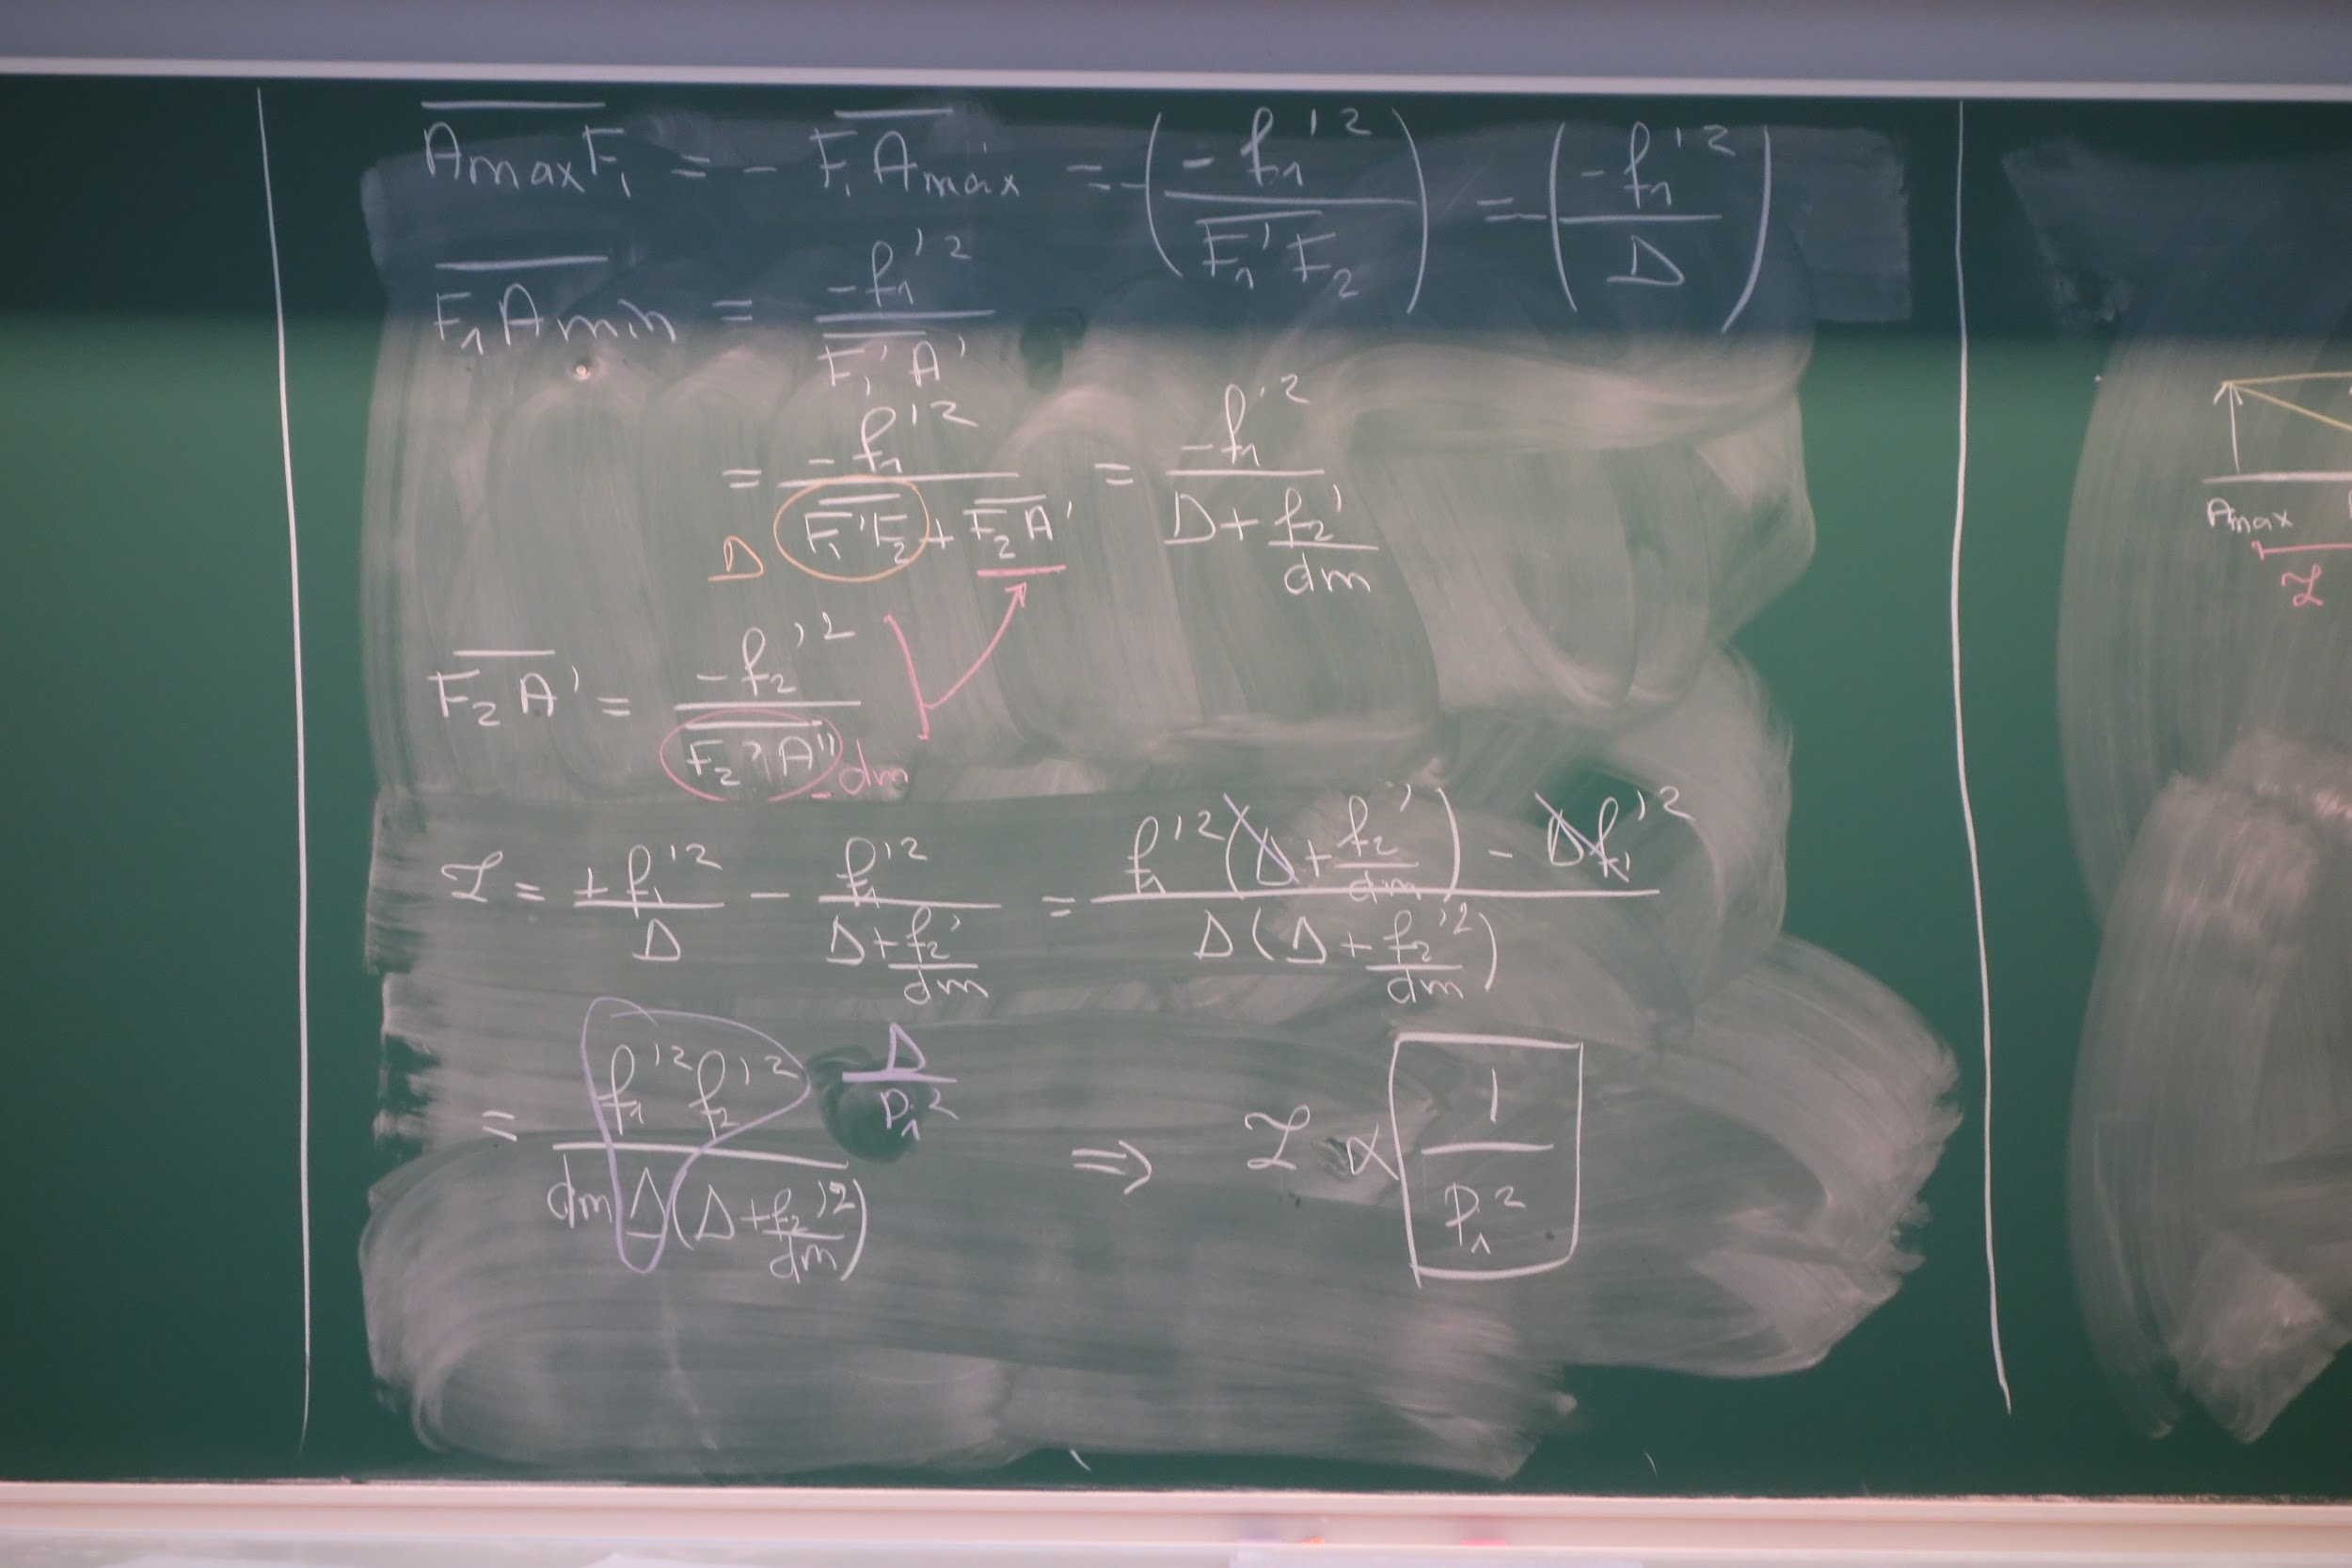 A̅m̅a̅x̅F̅₁̅ = - F̅₁̅A̅m̅a̅x̅ = -(-f₁'² / F₁'F₂) = -(-f₁'² / Δ)
F₁Amin = -f₁'² / F₁'A'
= -f₁'² / (F₁'F₂ + F₂A') = -f₁'² / (Δ + f₂' / dm)
Δ
F₂A' = -f₂'² / F₂'A'' -dm
L = +f₁'² / Δ - f₁'² / (Δ + f₂' / dm) = (f₁'²(Δ + f₂' / dm) - Δf₁'²) / Δ(Δ + f₂'² / dm)
= f₁'² f₂'² / dm Δ(Δ + f₂'² / dm) Δ / P₁² ⇒ L ∝ 1 / P₁²
Amax
L